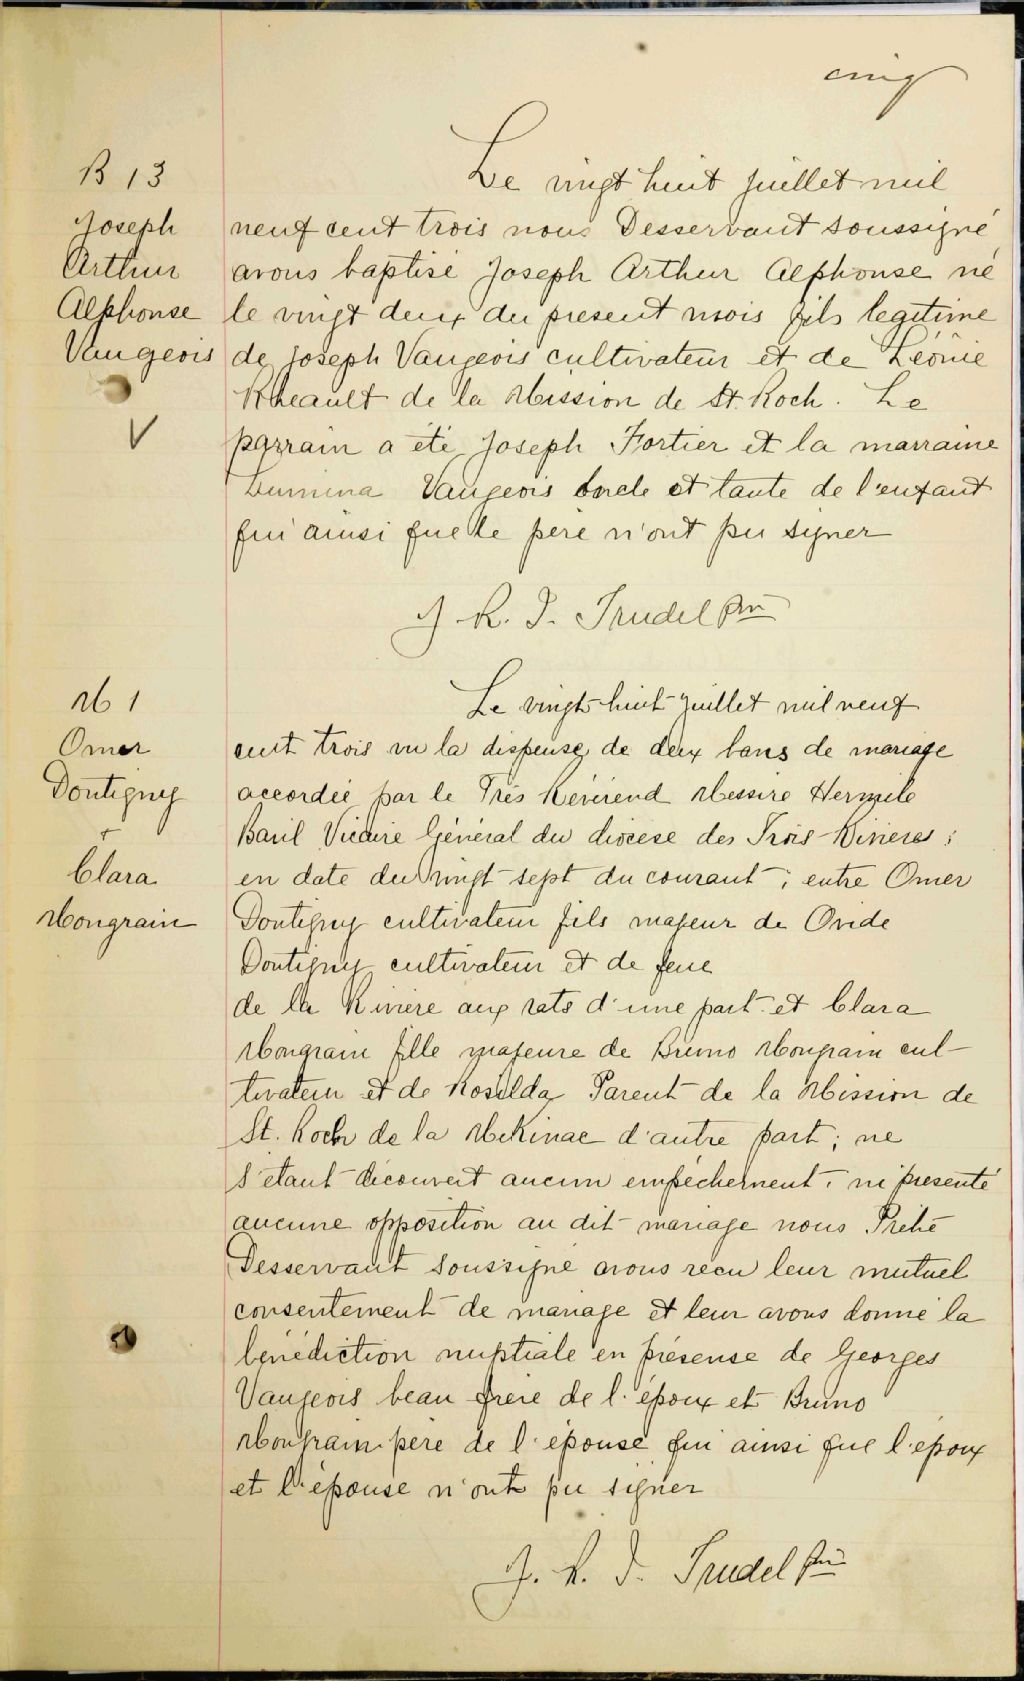 cinq
B 13
Joseph
Arthur
Alphonse
Vaugeois
V
Le vingt huit juillet mil
neuf cent trois nous Desservant soussigné
avons baptisé Joseph Arthur Alphonse né
le vingt deux du present mois fils legitime
de Joseph Vaugeois cultivateur et de Léonie
Rheault de la Mission de St. Roch. Le
parrain a été Joseph Fortier et la marraine
Vaugeois oncle et tante de l'enfant
qui ainsi que le père n'ont pu signer
J. R. I. Trudel Ptre
M 1
Omer
Dontigny
+
Clara
Mongrain
Le vingt-huit juillet mil neuf
cent trois vu la dispense de deux bans de mariage
accordée par le Très Révérend Messire Hermile
Baril Vicaire Général du diocèse des Trois-Rivieres ;
en date du vingt-sept du courant ; entre Omer
Dontigny cultivateur fils majeur de Ovide
Dontigny cultivateur et de feue
de la Rivière aux rats d'une part et Clara
Mongrain fille majeure de Bruno Mongrain cul-
tivateur et de Rosilda Parent de la Mission de
St. Roch de la Mékinac d'autre part ; ne
s'étant découvert aucun empêchement, ni présenté
aucune opposition au dit mariage nous Prêtre
Desservant soussigné avons recu leur mutuel
consentement de mariage et leur avons donné la
bénédiction nuptiale en présense de Georges
Vaugeois beau frère de l'époux et Bruno
Mongrain père de l'épouse qui ainsi que l'époux
et l'épouse n'ont pu signer
J. R. I. Trudel Ptre